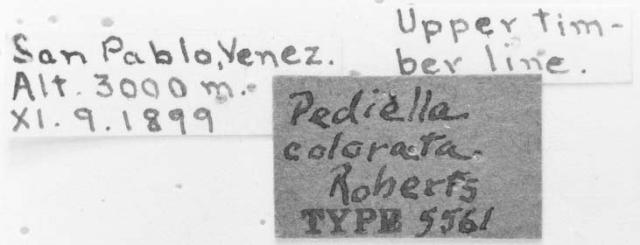 San Pablo, Venez.
Alt. 3000 m.
XI. 9. 1899
Upper tim-
ber line.
Pediella
colorata.
Roberts
TYPE 5561